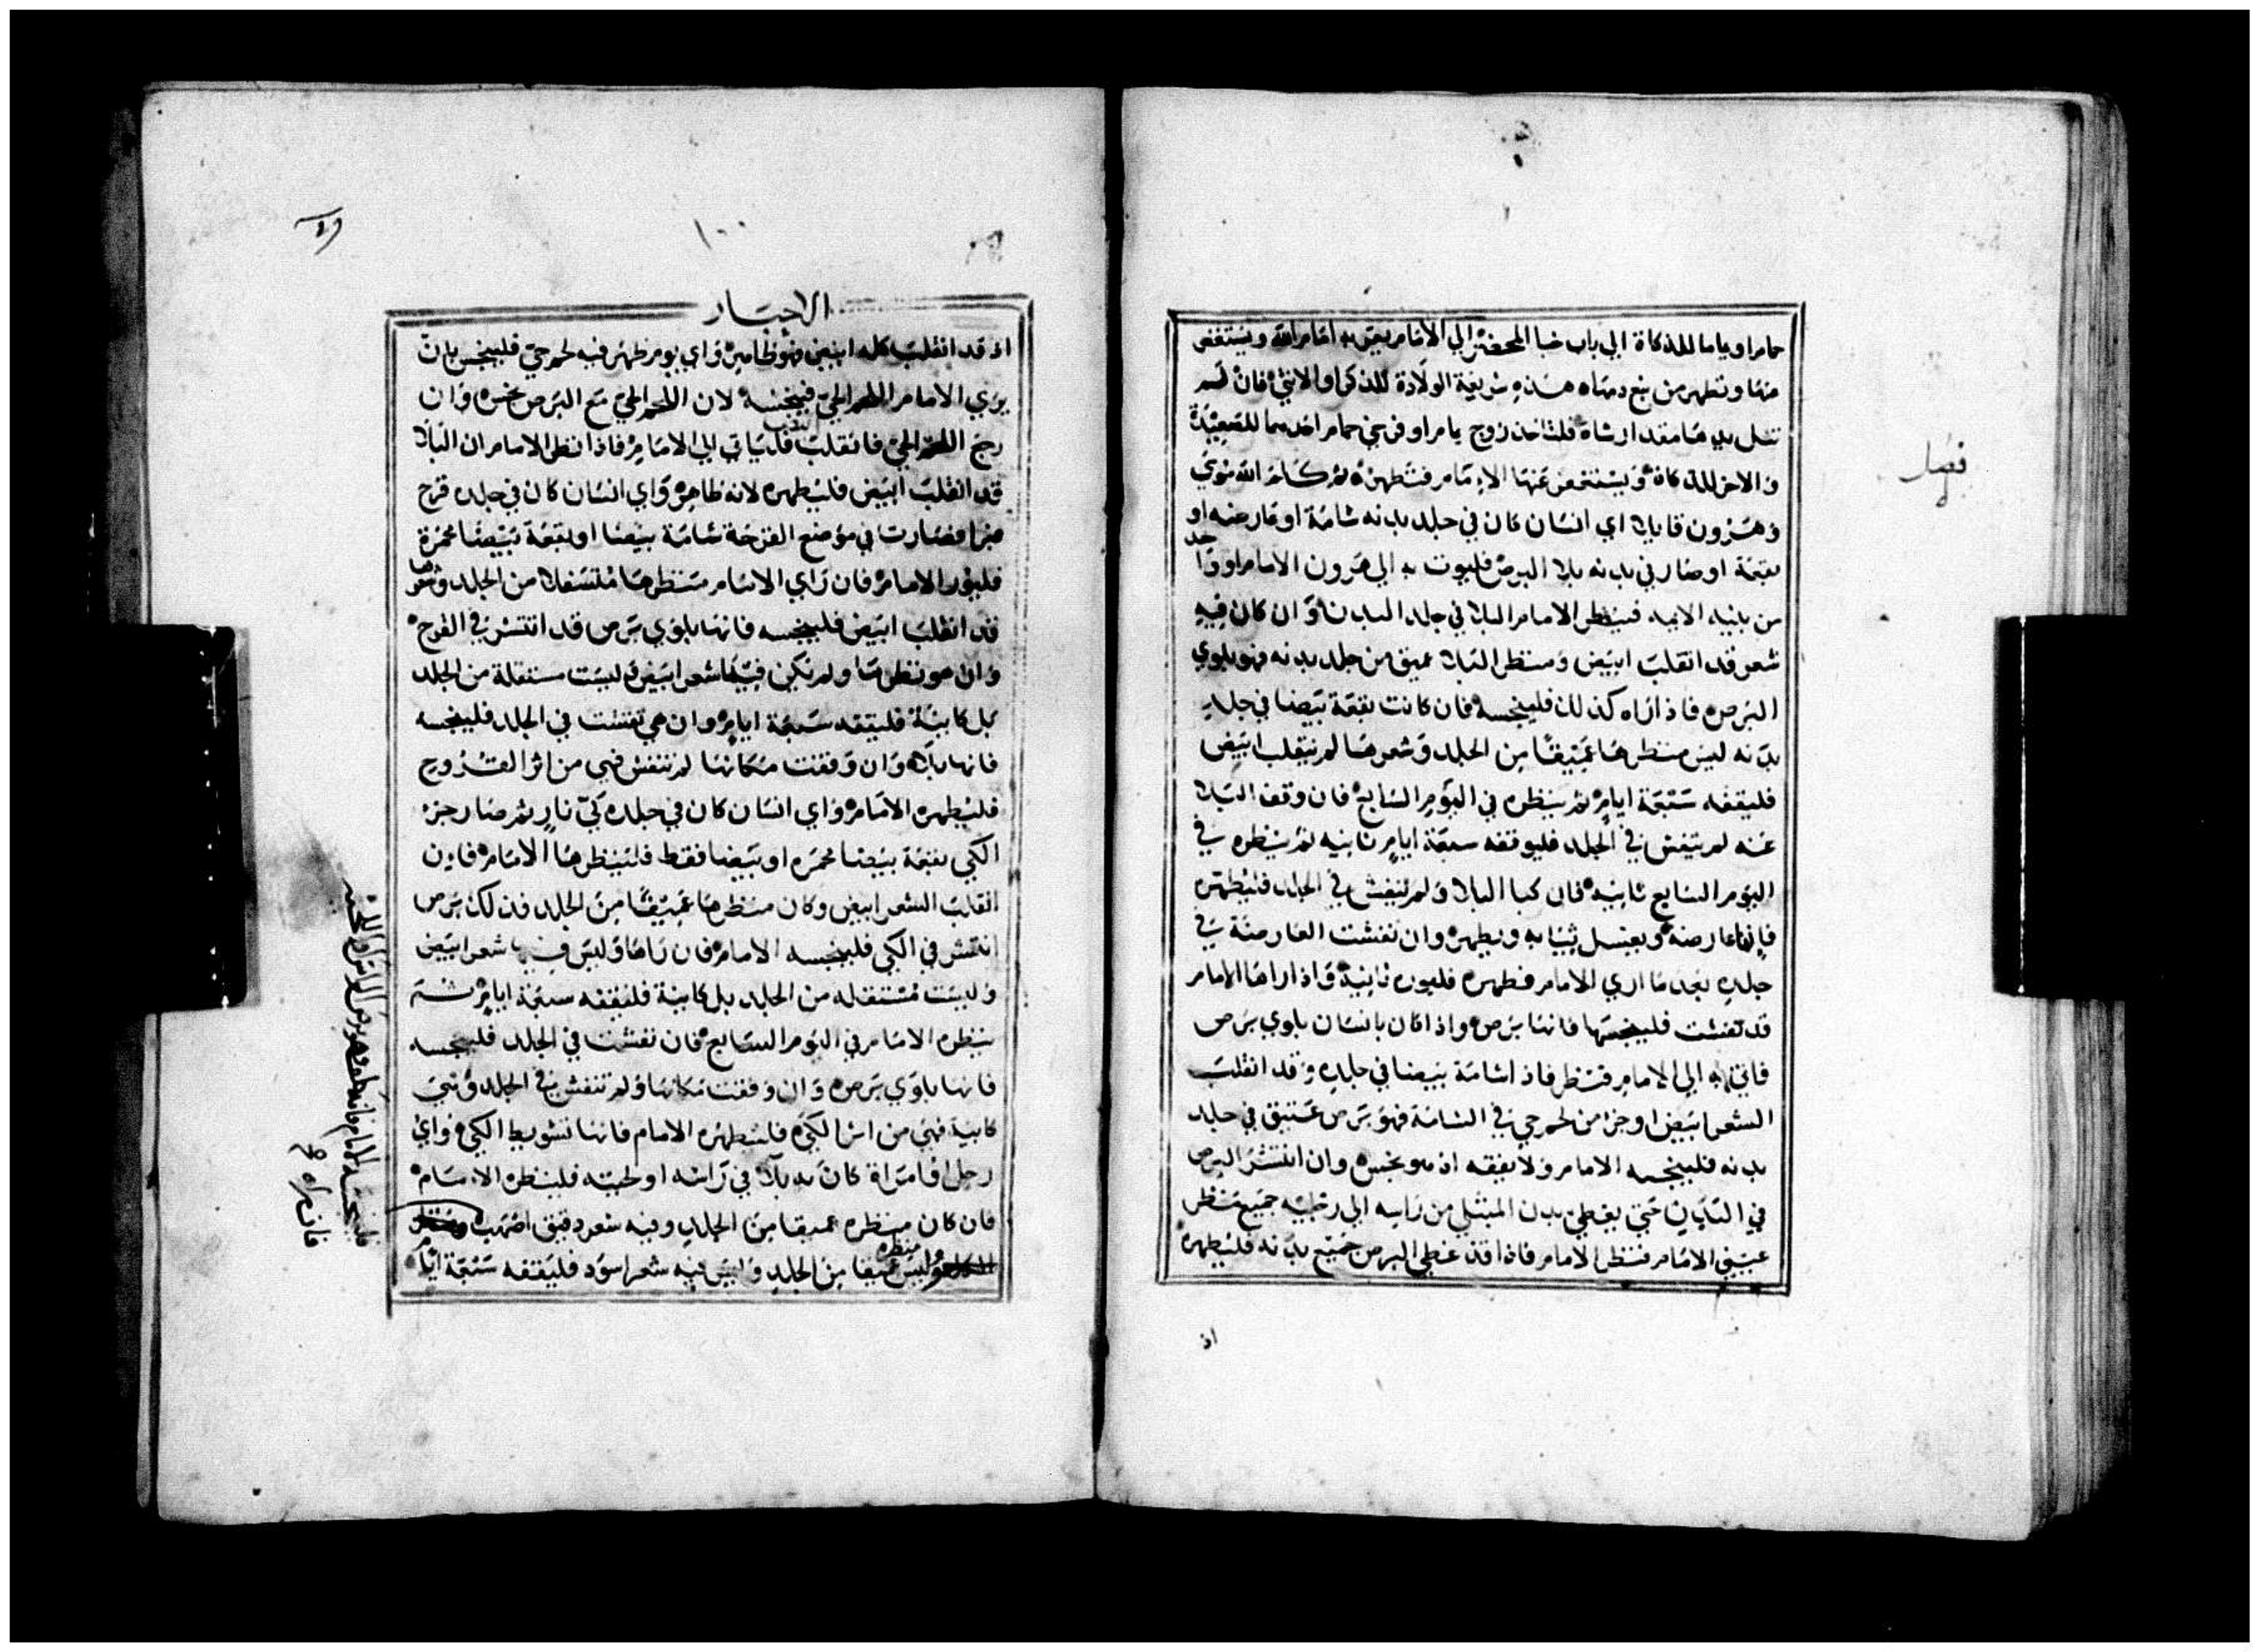 فصل
حماما او ياما للذكاة الي باب خبا المحضر الي الامام يقربه امام الله ويستغفر
عنها وتطهر من ينبع دمها ه هذه شريعة الولادة للذكر او الانثي فان لم
تنل يدها مقدار شاه فلتاخذ زوج يمام او فرخي حمام احدهما للصعيدة
والاخر للذكاة ويستغفر عنها الامام فتطهر ثم كلم الله موسي
وهرون قايلا اي انسان كان في جلد بدنه شامة او عارضه او
بقعة او صار في بدنه بلا البرص فليوت به الي هرون الامام او واحد
من بنيه الايمه فينظر الامام البلا في جلد البدن وان كان فيه
شعر قد انقلب ابيض ومنظر البلا عميق من جلد بدنه فهو بلوي
البرص فاذا راه كذلك فلينجسه فان كانت بقعة بيضا في جلد
بدنه ليس منظرها عميقا من الجلد وشعرها لم ينقلب ابيض
فليقفه سبعة ايام ثم ينظره في اليوم السابع فان وقف البلا
عنه لم يتفش في الجلد فليوقفه سبعة ايام ثانيه ثم ينظره في
اليوم السابع ثانية فان كبا البلا ولم يتفش في الجلد فليطهره
فانها عارضه ويغسل ثيابه ويطهر وان تفشت العارضة في
جلده بعد ما اري الامام فطهره فليوره ثانية فاذا راها الامام
قد تفشت فلينجسها فانها برص واذا كان بانسان بلوي برص
فاتي به الي الامام فنظر فاذا شامة بيضا في جلده وقد انقلب
الشعر ابيض او جز من لحم حي في الشامة فهو برص عتيق في جلد
بدنه فلينجسه الامام ولا يقفه اذ هو نجس وان انتشر البرص
في البدن حتي يغطي بدن المبتلي من راسه الي رجليه جميع منظر
عيني الامام فنظر الامام فاذا قد غطي البرص جميع بدنه فليطهره
اذ
١٠٠
الاحبار
اذ قد انقلب كله ابيض فهو طاهر واي يوم ظهر فيه لحم حي فلينجس بان
يري الامام اللحم الحي فينجسه لان اللحم الحي مع البرص نجس وان
رجع اللحم الحي فانقلب فلياتي الي الامام فاذا نظر الامام ان البلا
قد انقلب ابيض فليطهره لانه طاهر واي انسان كان في جلده قرح
فبرا فصارت في موضع القرحة شامة بيضا او بقعة بيضا محمرة
فليور الامام فان راي الامام منظرها مستفلا من الجلد وشعرها
قد انقلب ابيض فلينجسه فانها بلوي برص قد انتشر في القرح
وان هو نظرها ولم يكن فيها شعر ابيض وليست مستفلة من الجلد
بل كابية فليقفه سبعة ايام وان هي تفشت في الجلد فلينجسه
فانها بلا وان وقفت مكانها لم تتفش فهي من اثر القروح
فليطهره الامام واي انسان كان في جلده كي نار ثم صار جز
الكي بقعة بيضا محمره او بيضا فقط فلينظرها الامام فان
انقلب الشعر ابيض وكان منظرها عميقا من الجلد فذلك برص
انتشر في الكي فلينجسه الامام فان راها وليس فيها شعر ابيض
وليست مستفله من الجلد بل كابية فليقفه سبعة ايام ثم
ينظره الامام في اليوم السابع فان تفشت في الجلد فلينجسه
فانها بلوي برص وان وقفت مكانها ولم تتفش في الجلد وهي
كابية فهي من اثر الكي فليطهره الامام فانها تشويط الكي واي
رجل او امراة كان به بلا في راسه او لحيته فلينظره الامام
فان كان منظره عميقا من الجلد وفيه شعر دقيق اصهب
وليس منظره عميقا من الجلد وليس فيه شعر اسود فليقفه سبعة ايام
فلينجسه الامام فانه وهو برص الراس او اللحيه
فان راه